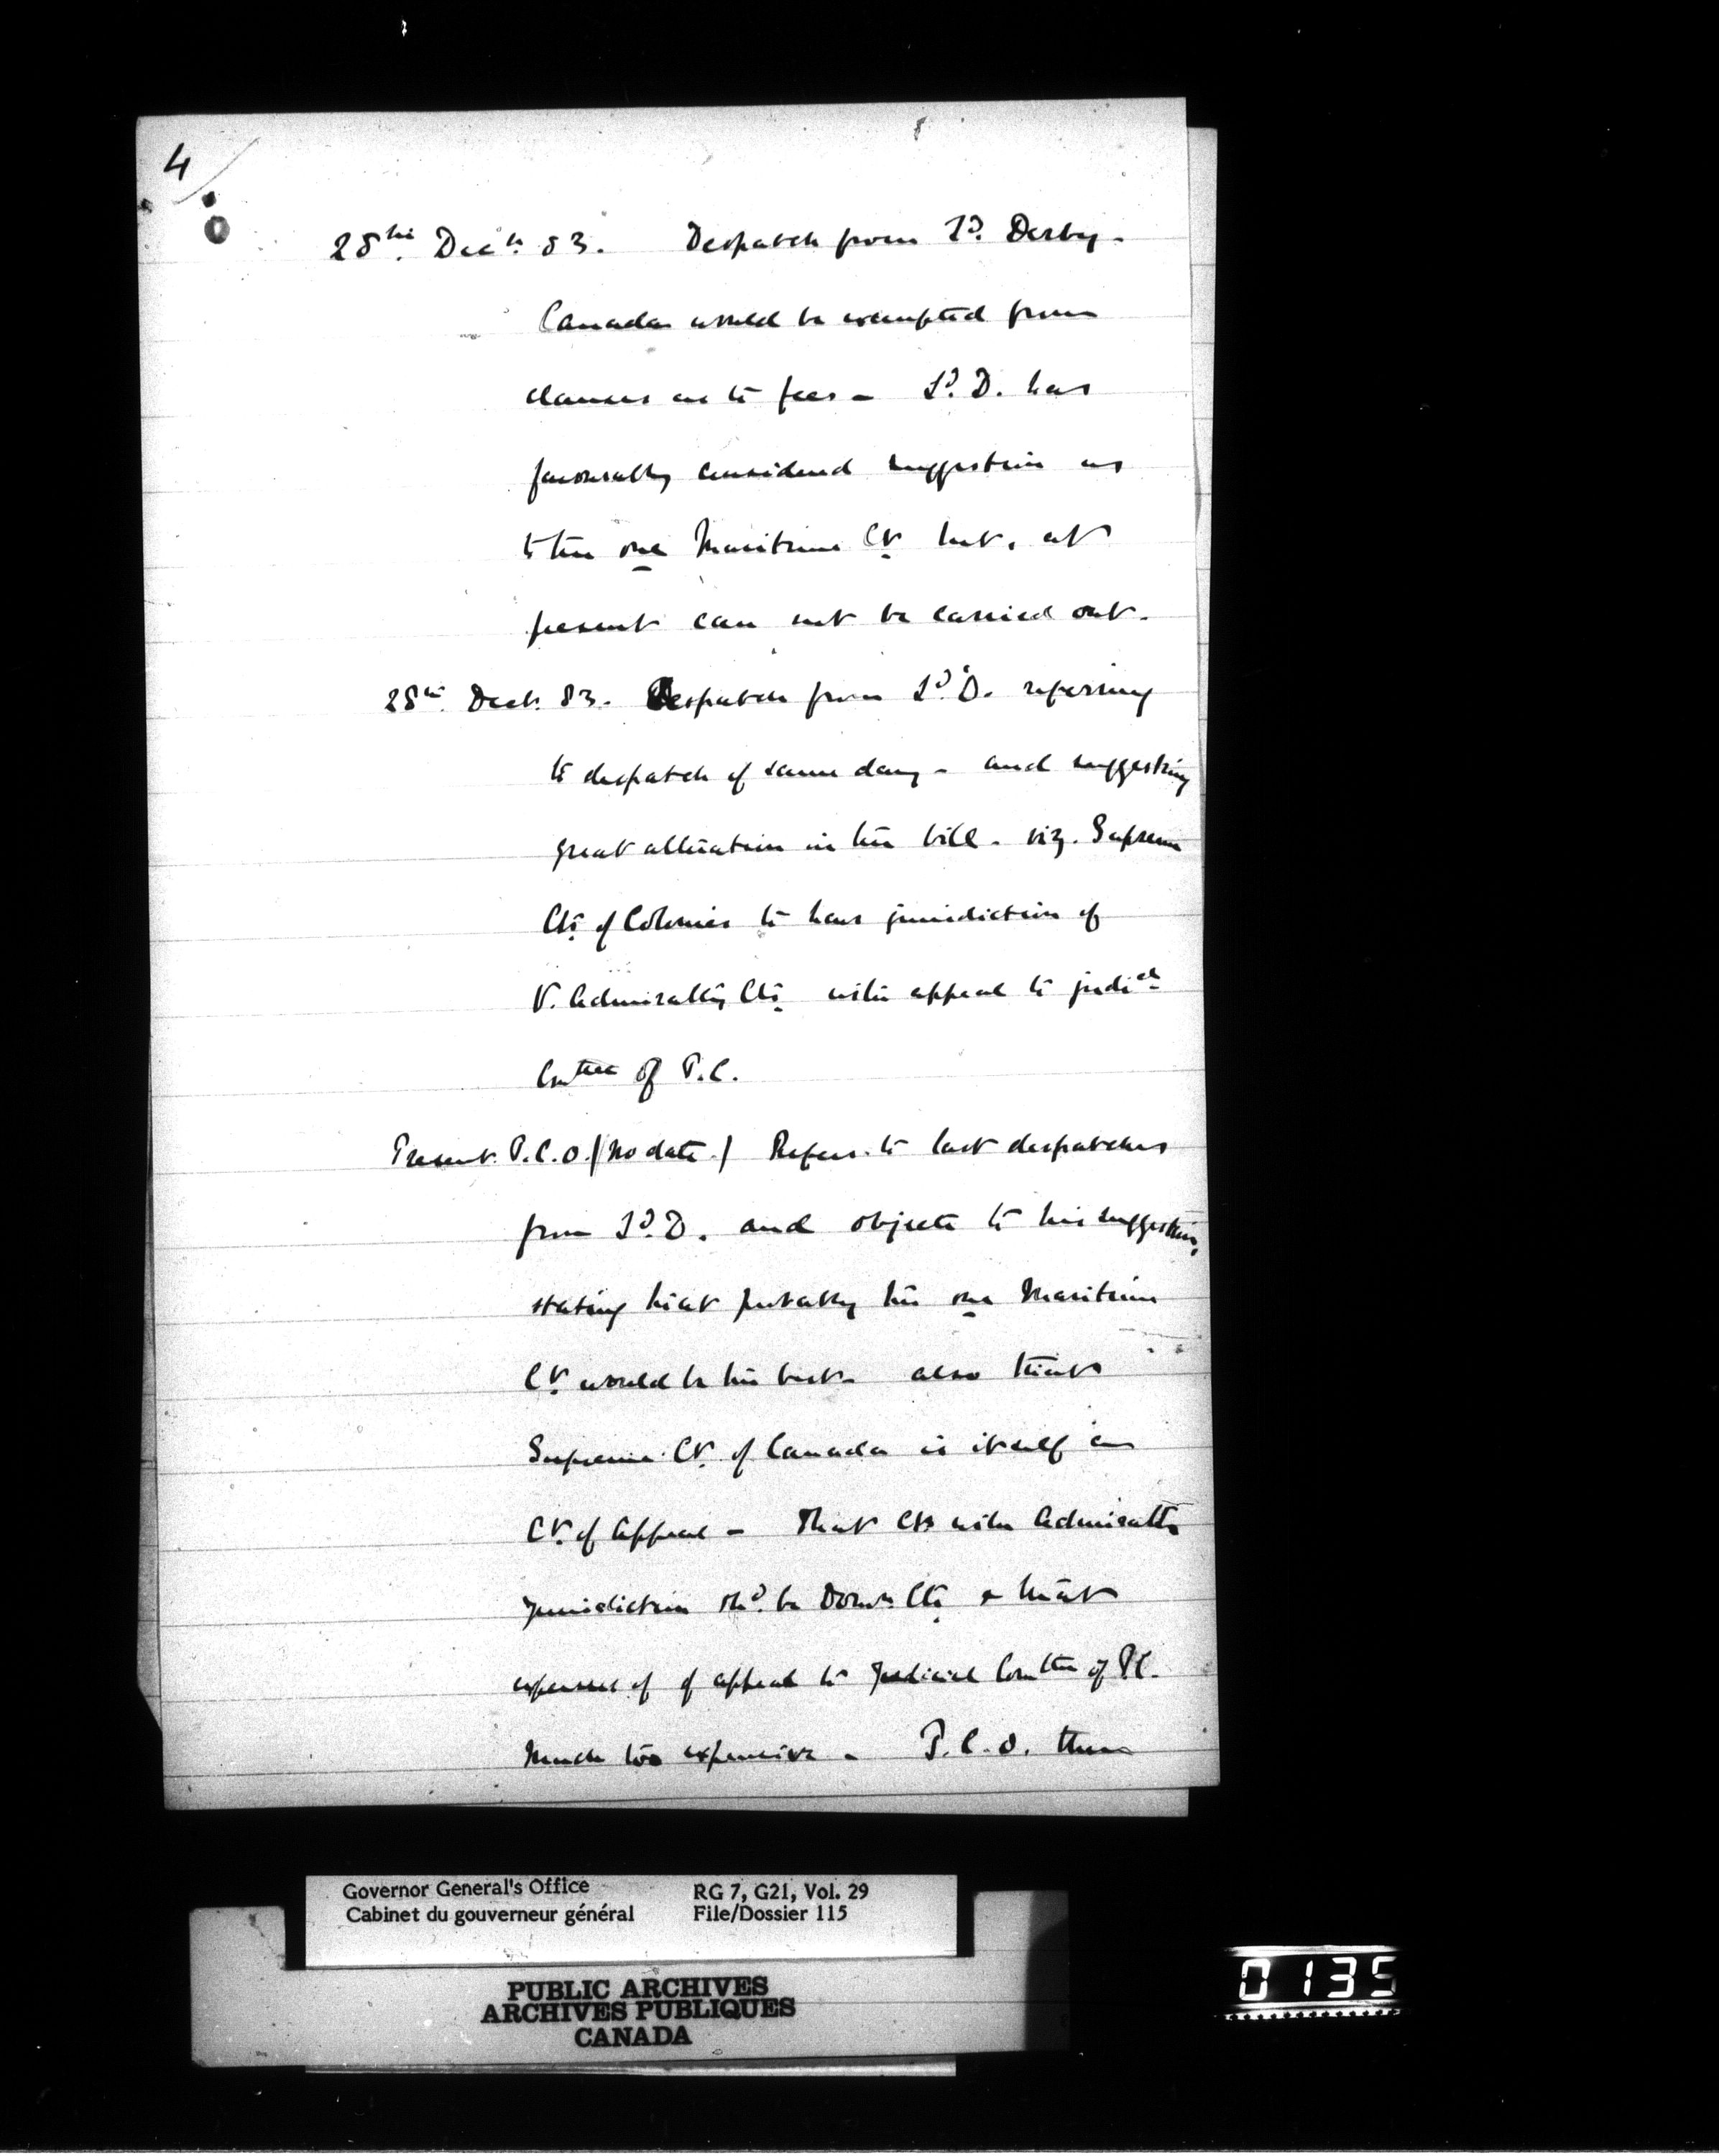 4
28th. Decr. 83. Despatch from Ld. Derby -
Canada would be exempted from
clauses as to fees - Ld. D. has
favourably considered suggestion as
to the one Maritime Ct. but, at
present can not be carried out.
28th. Decr. 83. Despatch from Ld. D. referring
to despatch of same day - and suggesting
great alteration in the bill - viz. Supreme
Cts. of Colonies to have jurisdiction of
V. Admiralty Cts. with appeal to judicl
Comttee of P.C.
Present P.C.O. (No date.) Refers to last despatches
from Ld. D. and objects to his suggestion,
stating that probably the one Maritime
Ct. would be the best - also that
Supreme Ct. of Canada is itself a
Ct. of Appeal - That Cts with Admiralty
jurisdiction shd. be Domn. Cts. & that
expenses of of appeal to Judicial Comttee of P.C.
much too expensive - P.C.O. then
Governor General's Office RG 7, G21, Vol. 29
Cabinet du gouverneur général File/Dossier 115
PUBLIC ARCHIVES
ARCHIVES PUBLIQUES
CANADA
0135